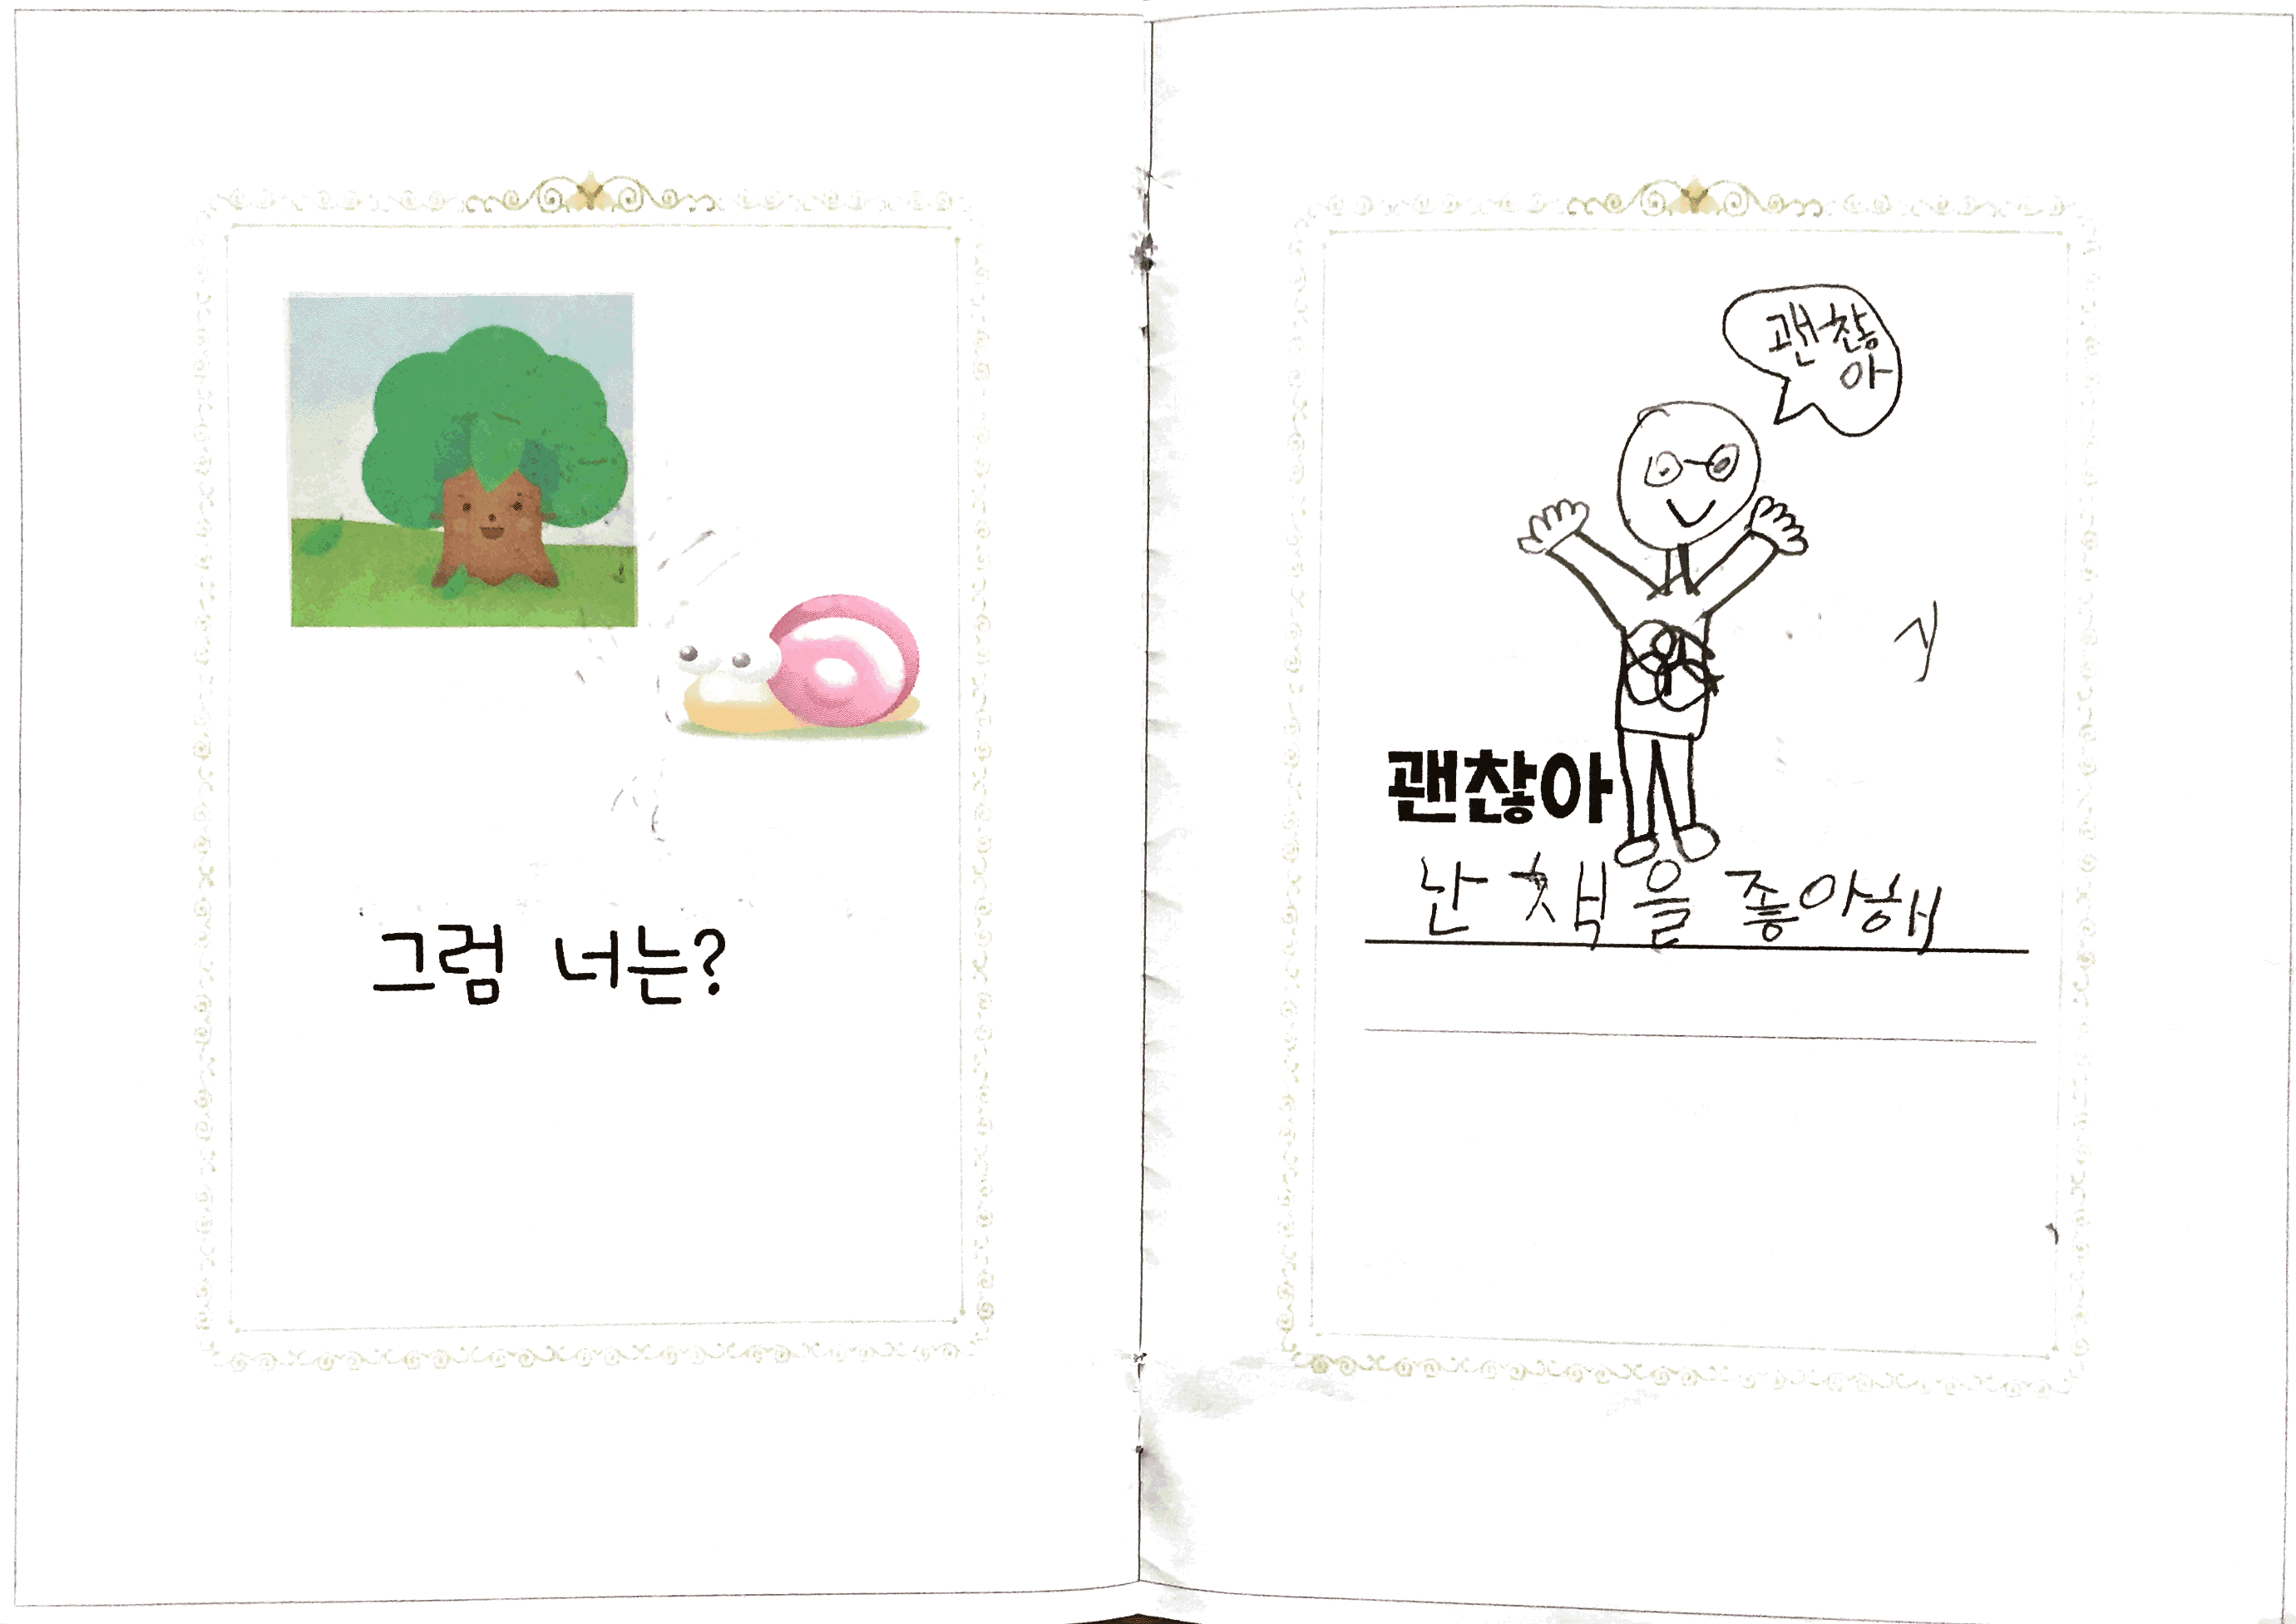 그럼 너는?
괜찮
아
괜찮아
난 책을 좋아해